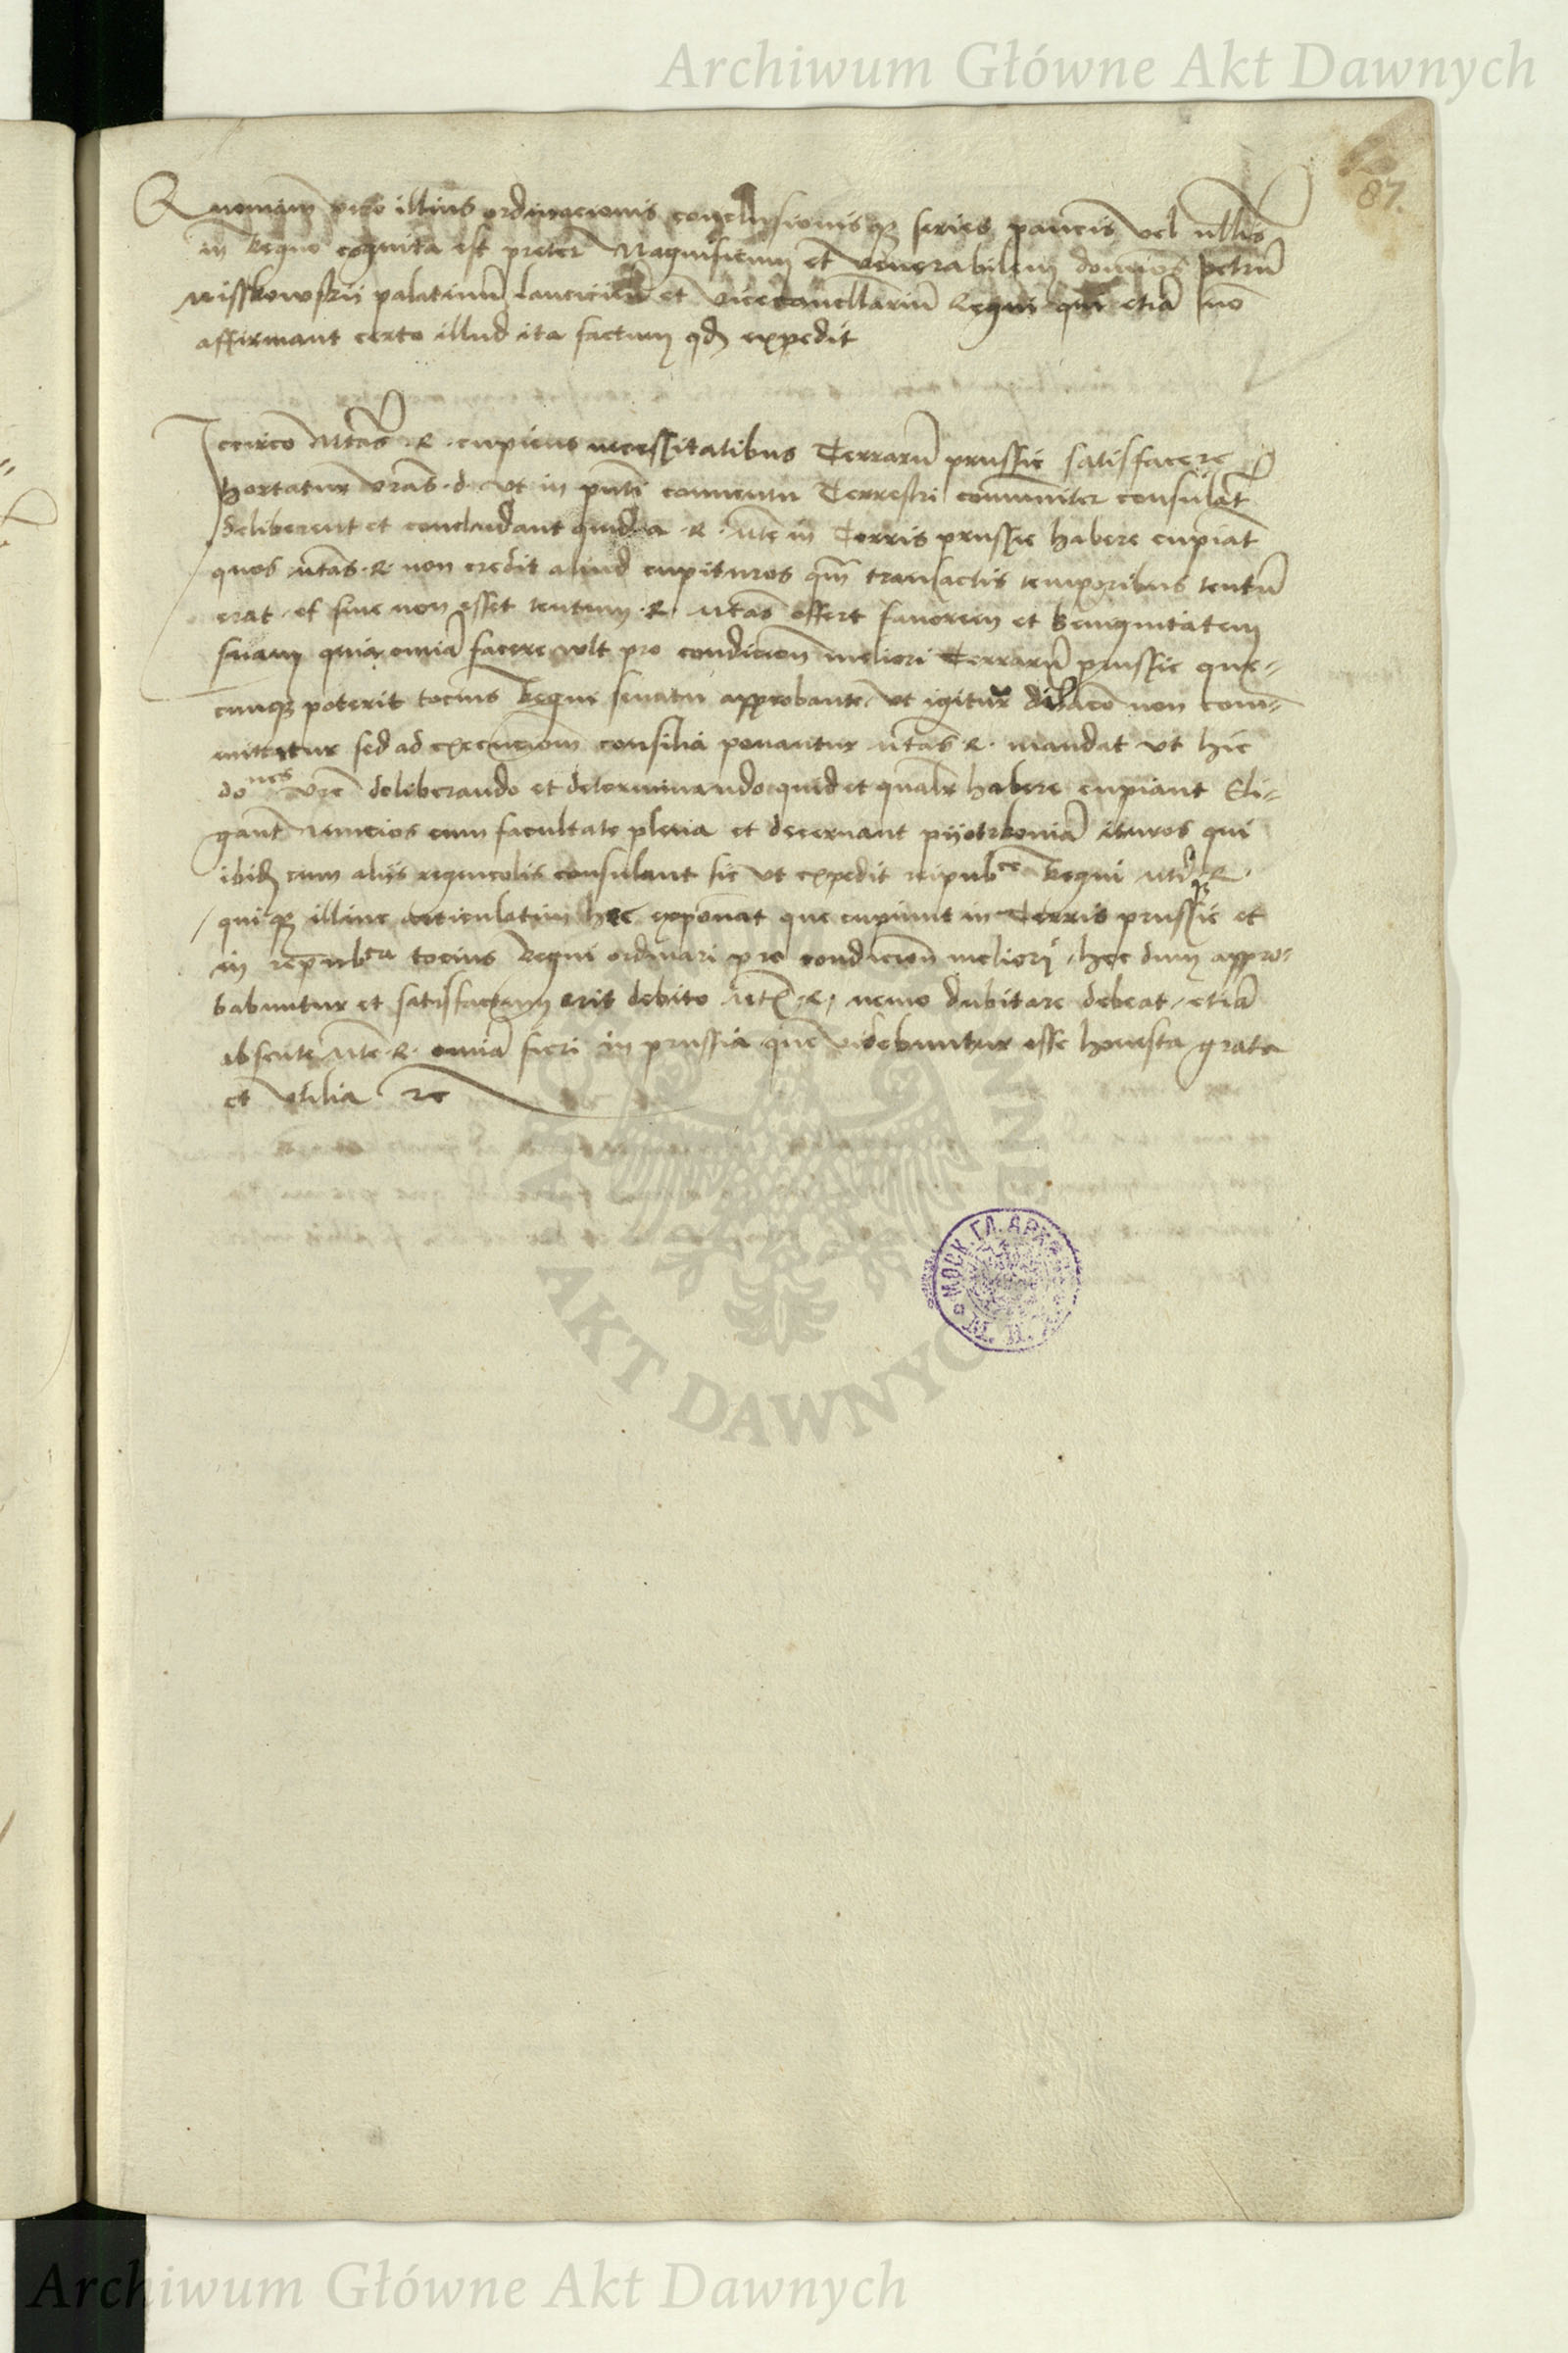 Archiwum Główne Akt Dawnych
87.
Quoniam vero illius ordinacionis conclusionis qꝫ series paucis vel nullis
in Regno cognita est preter Magnificum et venerabilem domīos petrū
Misskowskii palatinū lanciciēn et vicecancellariū Regni qui etiā nō
affirmant certo illud ita factum qd expedit
Iccirco Mtas R. cupiens necessitatibus Terrarū prussie satisfacere
hortatur vras d. vt in pnti conuentu Terrestri communiter consulāt
deliberent et concludant quid a R. Mte in Terris prussie habere cupiāt
quos Mtas R. non credit aliud cupituros qm transactis temporibus tentū
erat et sine non esset tentum R. Mtas offert fauorem et benignitatem
suam quia omīa facere vlt pro condicioni meliori Terrarū prussie que-
cunqꝫ poterit tocius Regni senatu approbante vt igitur dilacō non com-
mittatur sed ad execucionem consilia ponantur Mtas R. mandat vt hic
do nes vre deliberando et determinando quid et qualr habere cupiant Eli-
gant Nuncios cum facultate plena et decernant pyotrkoniā ituros qui
ibidē cum aliis regnicolis consulant sic vt expedit reipubce Regni Mtiqꝫ R.
quiqꝫ illinc articulatim hec exponāt que cupiunt in Terris prussie et
in repubca tocius Regni ordinari pro condicioni meliori hec dum appro-
babuntur et satisfactum erit debito Mti R. nemo dubitare debeat etiā
absente Mte R. omīa fieri in prussia que videbuntur esse honesta grata
et vtilia etc
AKT DAWNYCH
МОСК. ГЛ. АРХ.
М. И.
Archiwum Główne Akt Dawnych